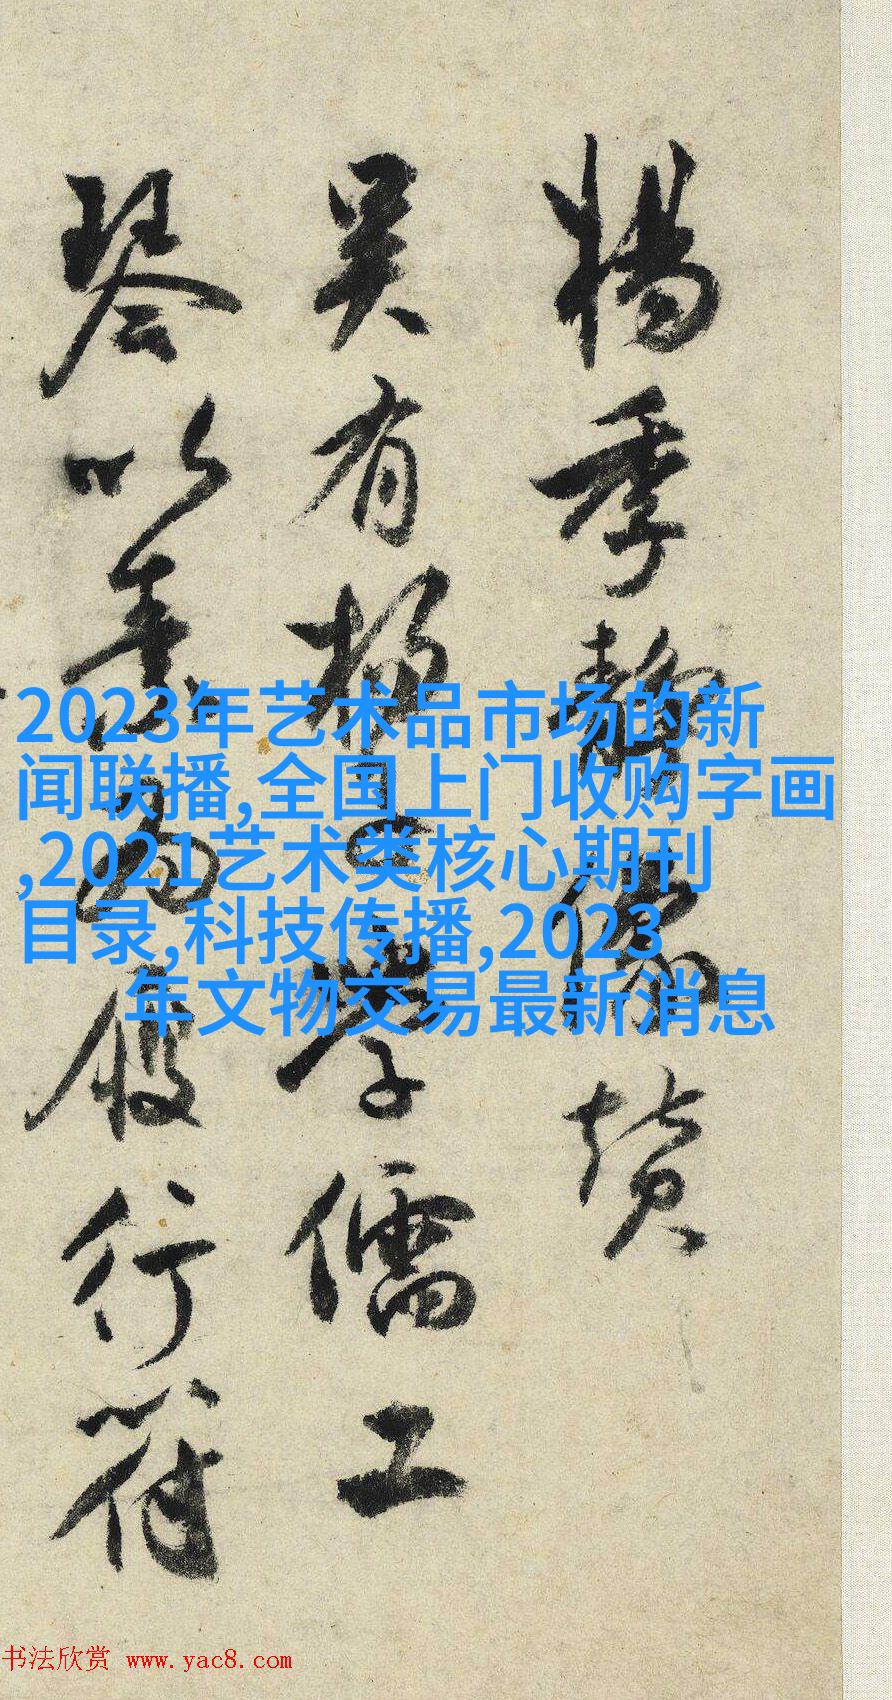 楊季靜像贊
吳有楊子學儒工
琴以為腹行符
2023年艺术品市场的新
闻联播,全国上门收购字画
,2021艺术类核心期刊
目录,科技传播,2023
年文物交易最新消息
书法欣赏 www.yac8.com